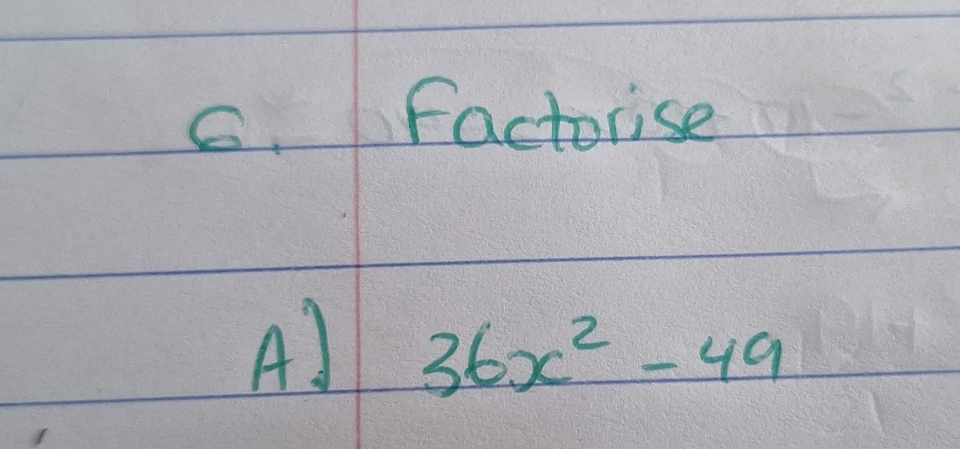 6. Factorise
A) 36x² - 49